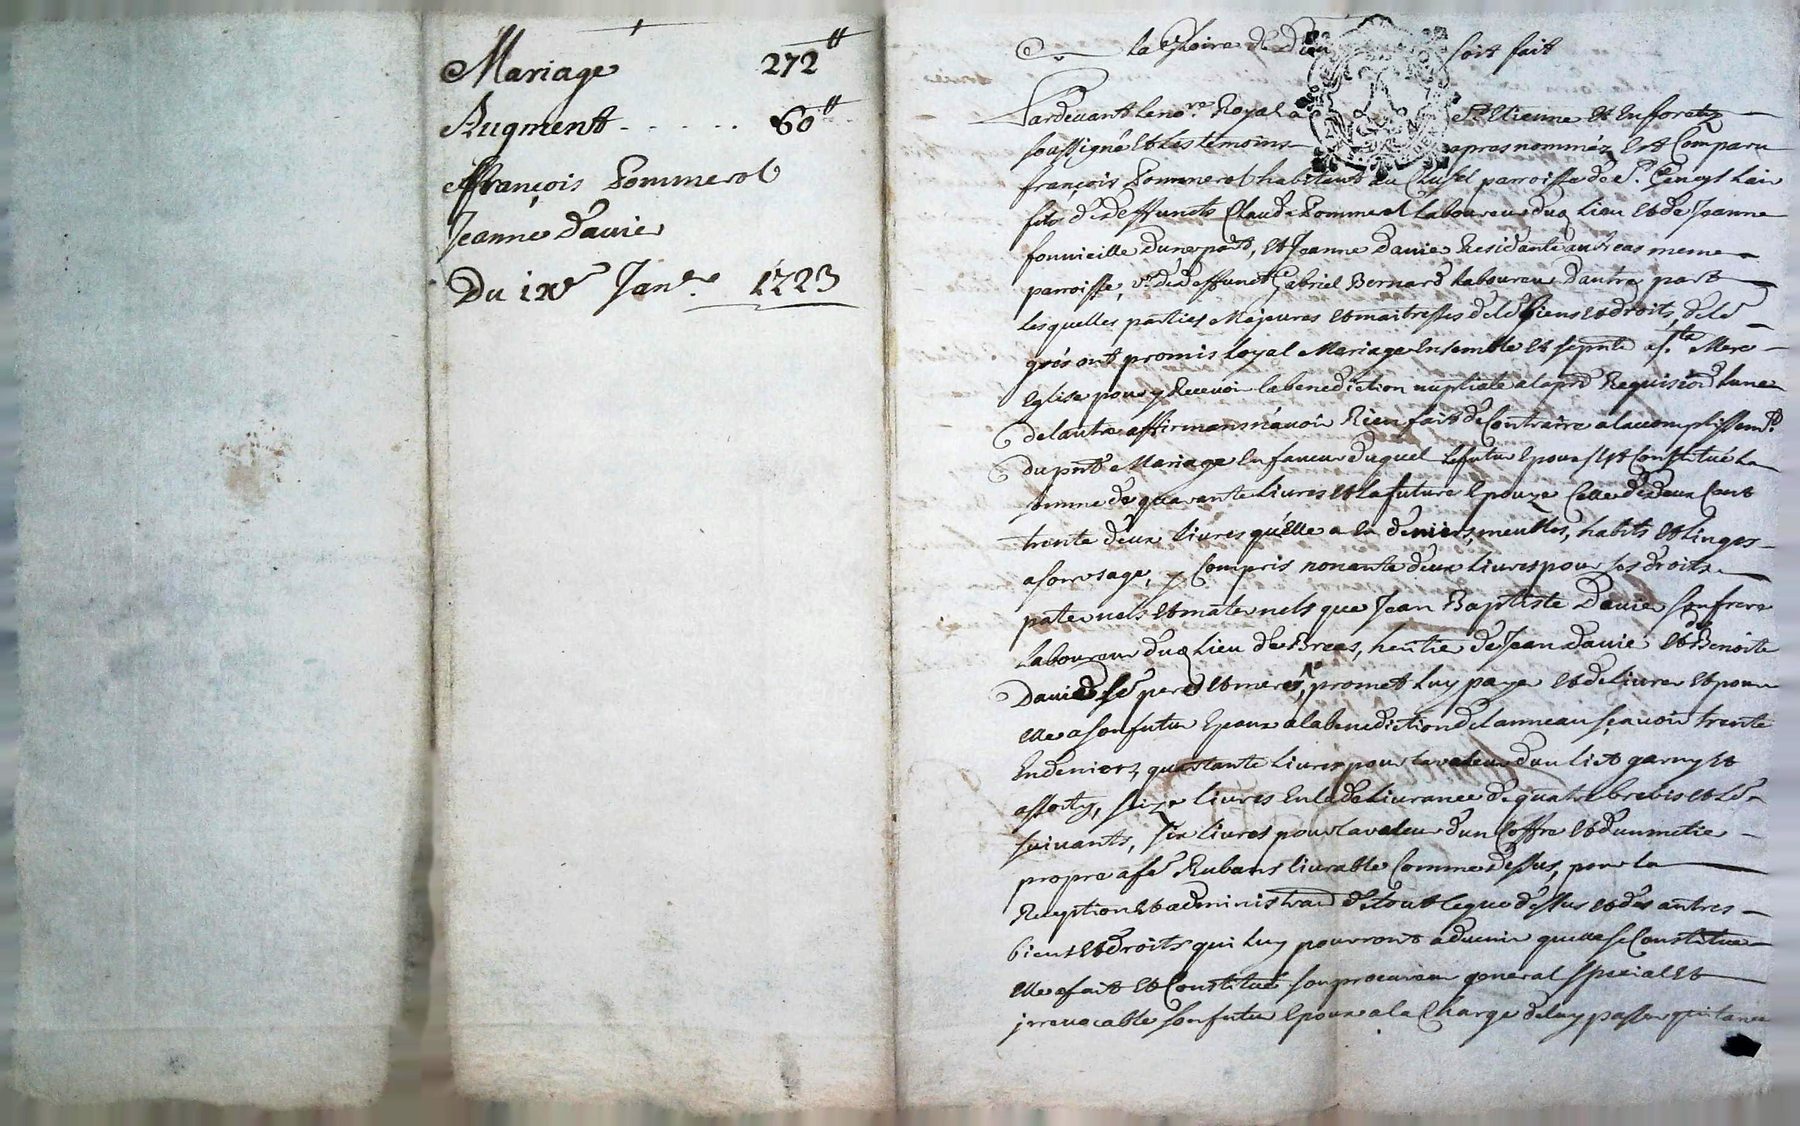 Mariage 272#
Augment - - - - - - 60#
ffrançois Pommerol
Jeanne Davier
Du ixe Janer. 1723
la Gloire de Dieu soit fait
Pardevant le nore. Royal a St Etienne et en forets
soussigné et les temoins apres nommés, est Comparu
françois Pommerol habitant au Cluzel parroisse de St. Genest Lair
fils de deffuncts Claude Pommerol Laboureur dud Lieu et de Jeanne
fonvieille d'une part, et Jeanne Davier Residante au Breas meme
parroisse, ve. de deffunct Gabriel Bernard Laboureur d'autre part
Lesquelles parties Majeures et maitresses de Ses biens et droits, de Ses
grés ont promis Loyal Mariage Ensemble et se pnter a ste. Mere
Eglise pour y Recevoir la benediction nuptiale a la pre Requision d'lune
de lautre affirmans n'avoir Rien fait de Contraire a laccomplissemt.
du pnt Mariage En faveur duquel Le futur Epoux s'est Constitué La
somme de quarante Livres et La future Epouze Celle de deux Cent
trente deux Livres qu'elle a En deniers, meubles, habits et Linges
a son usage, y Compris nonante deux Livres pour ses droits
paternels et maternels que Jean Baptiste Davier son frere
Laboureur dud Lieu de Breas, heritier de Jean Davier et de Benoite
Davier Ses pere et mere, promet Luy payer et delivrer et pour
Elle a son futur Epoux a la benediction de l'anneau sçavoir trente
En deniers, quarante Livres pour la valeur d'un Lict garny et
assorty, seize livres En la deLivrance de quatre brebis et Ses
suivants, six livres pour la valeur d'un Coffre et d'un metier
propre a fe Rubans livrable Comme dessus, pour la
Reception et administraon de tout Ce que dessus et des autres
biens et droits qui Luy pourront advenir quelle se Constitue
Elle a fait et Constitué son procureur general special et
irrevocable son futur Epoux a la Charge de luy passer quitance